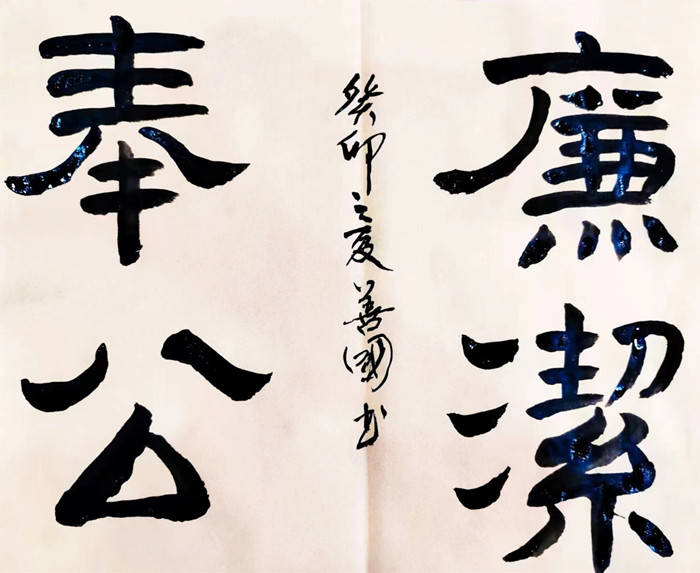 廉潔
奉公
癸卯之夏善國书